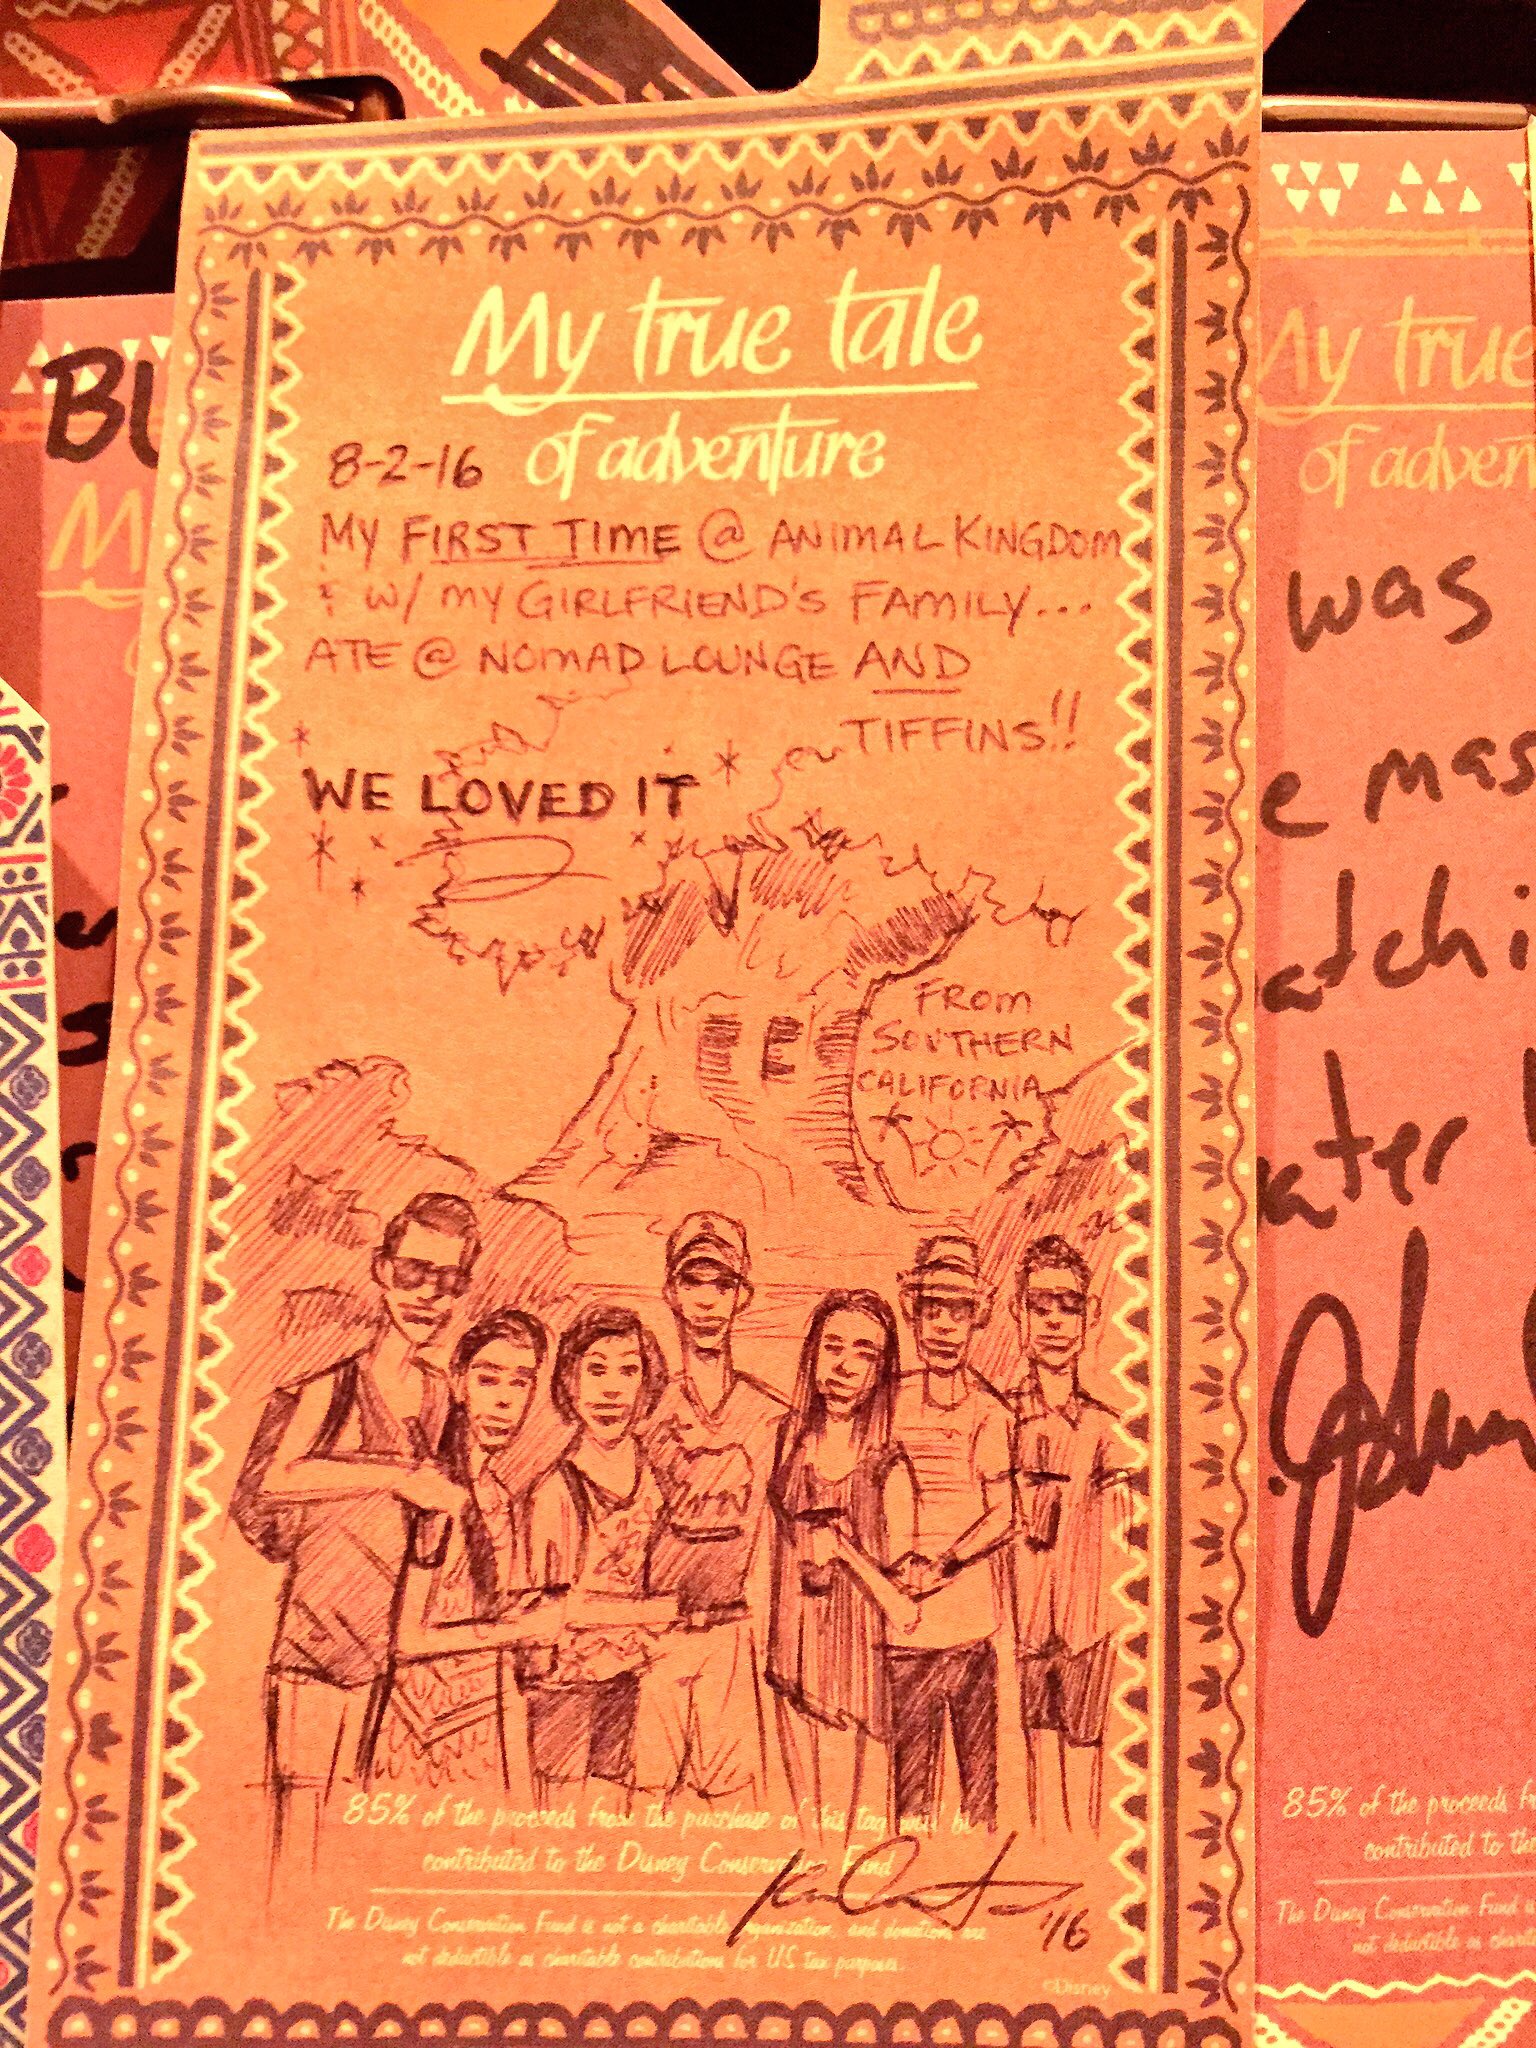 My true tale
of adventure
8-2-16
MY FIRST TIME @ ANIMAL KINGDOM
& W/ MY GIRLFRIEND'S FAMILY...
ATE @ NOMAD LOUNGE AND
TIFFINS!!
WE LOVED IT
FROM
SOUTHERN
CALIFORNIA
85% of the proceeds from the purchase of this tag will be
contributed to the Disney Conservation Fund
The Disney Conservation Fund is not a charitable organization, and donations are
not deductible as charitable contributions for US tax purposes.
'16
©Disney
BU
M
My true
of adven
was
e mas
atchi
ater
John
85% of the proceeds fr
contributed to th
The Disney Conservation Fund is
not deductible as charit